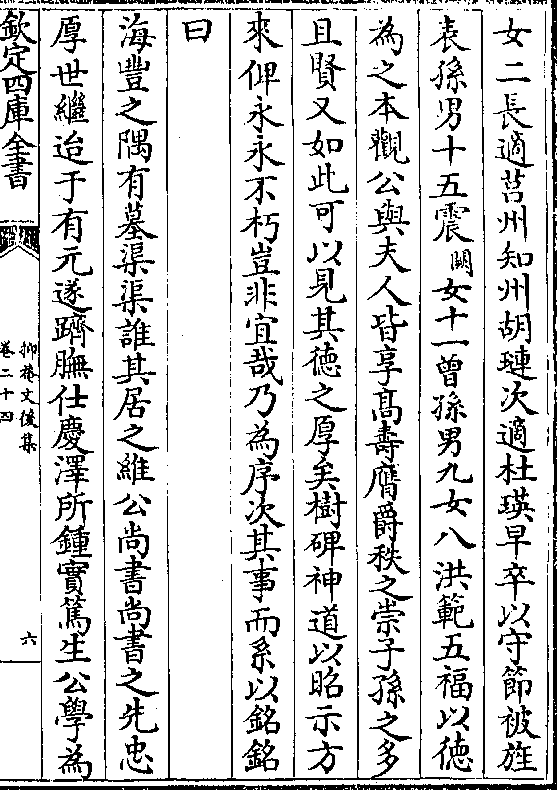 女二長適莒州知州胡璉次適杜瑛早卒以守節被旌
表孫男十五震闕女十一曾孫男九女八洪範五福以徳
為之本觀公與夫人皆享髙壽膺爵秩之崇子孫之多
且賢又如此可以見其徳之厚矣樹碑神道以昭示方
來俾永永不朽豈非宜哉乃為序次其事而系以銘銘
曰
海豐之隅有墓渠渠誰其居之維公尚書尚書之先忠
厚世繼迨于有元遂躋膴仕慶澤所鍾實篤生公學為
欽定四庫全書
抑菴文後集
卷二十四
六